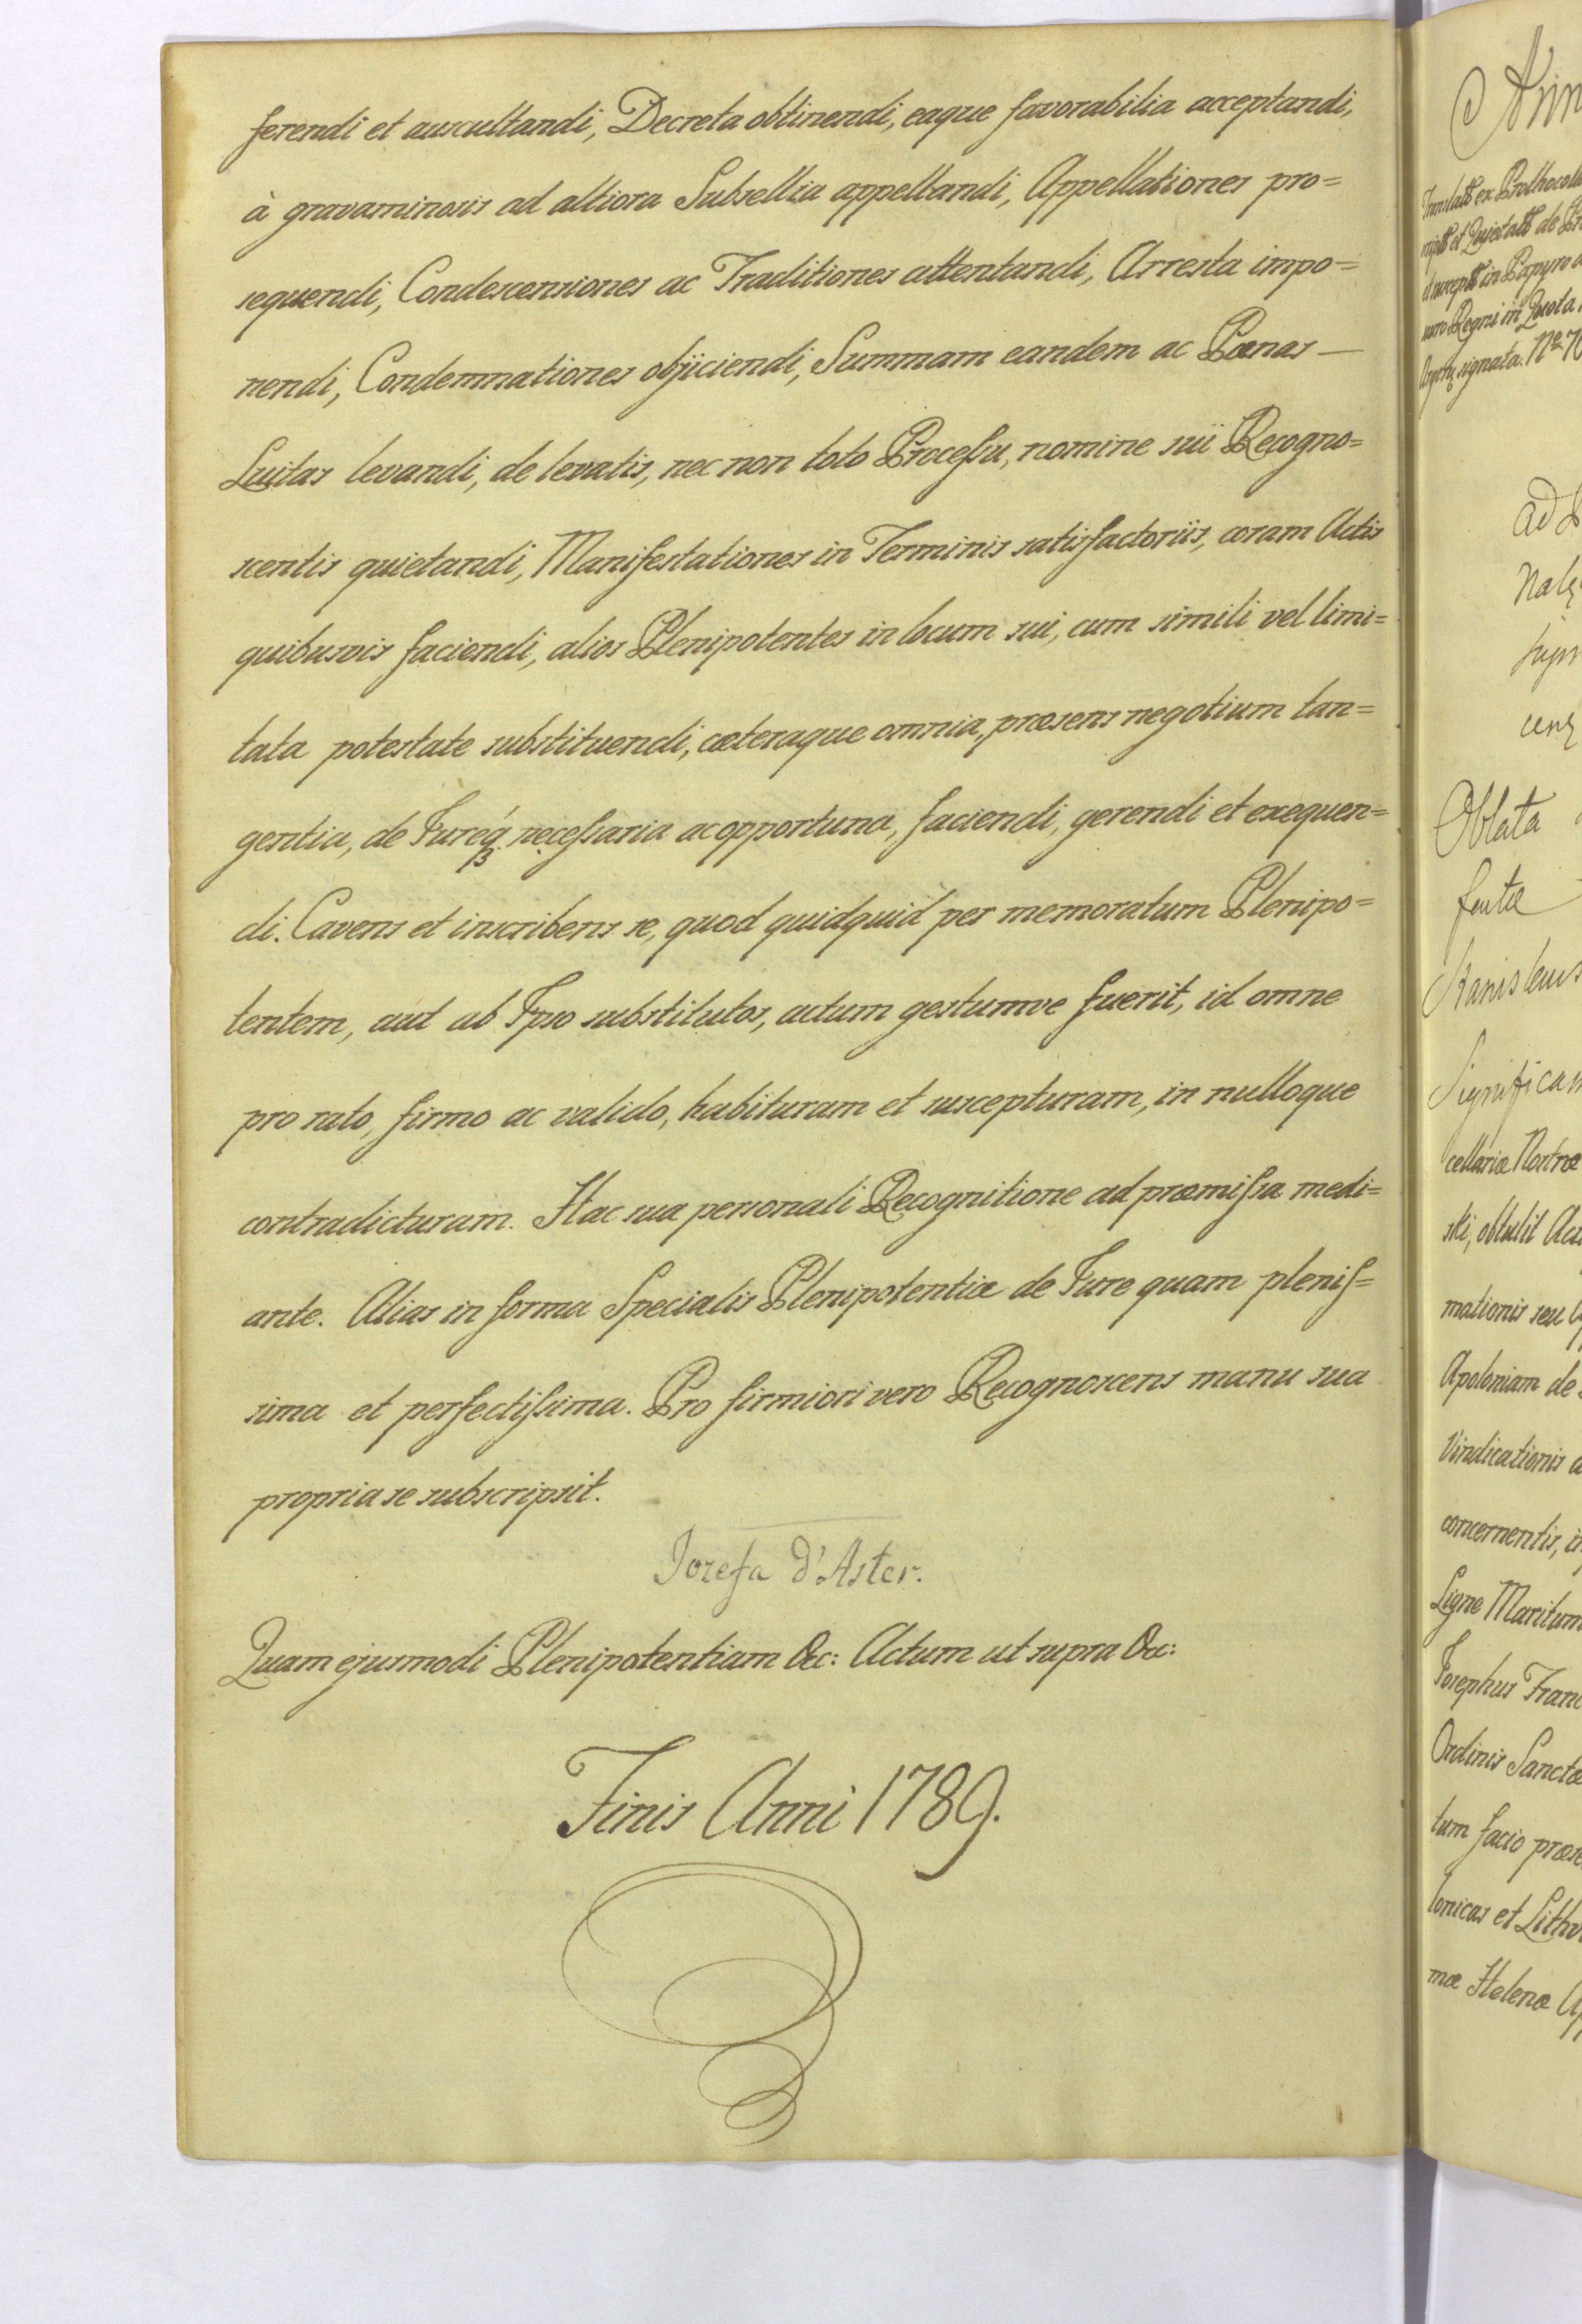 ferendi et auscultandi, Decreta obtinendi, eaque favorabilia acceptandi,
à gravaminosis ad altiora Subsellia appellandi, Appellationes pro=
sequendi, Condescensiones ac Traditiones attentandi, Arresta impo=
nendi, Condemnationes objiciendi, Summam eandem ac Pœnas —
Luitas levandi, de levatis, nec non toto Proceſsu, nomine sui Recogno=
scentis quietandi, Manifestationes in Terminis satisfactoriis, coram Actis
quibusvis faciendi, alios Plenipotentes in locum sui, cum simili vel limi=
tata potestate substituendi, cæteraque omnia, præsens negotium tan=
gentia, de Jureq́ꝫ neceſsaria ac opportuna, faciendi, gerendi et exequen=
di. Cavens et inscribens se, quod quidquid per memoratum Plenipo=
tentem, aut ab Ipso substitutos, actum gestumve fuerit, id omne
pro rato, firmo ac valido, habituram et suscepturam, in nulloque
contradicturam. Hac sua personali Recognitione ad præmiſsa medi=
ante. Alias in forma Specialis Plenipotentiæ de Jure quam pleniſ=
sima et perfectiſsima. Pro firmiori vero Recognoscens manu sua
propria se subscripsit.
Jozefa d'Aster.
Quam ejusmodi Plenipotentiam &c: Actum ut supra &c:
Finis Anni 1789.
Oblata
Stanislaus
cellariæ Nostræ
ski, obtulit
mationis seu
Apoloniam de
Vindicationis
concernentis,
Ligne Maritum
Josephus
Ordinis Sanctæ
tum facio
lonicas et
mæ Helenæ